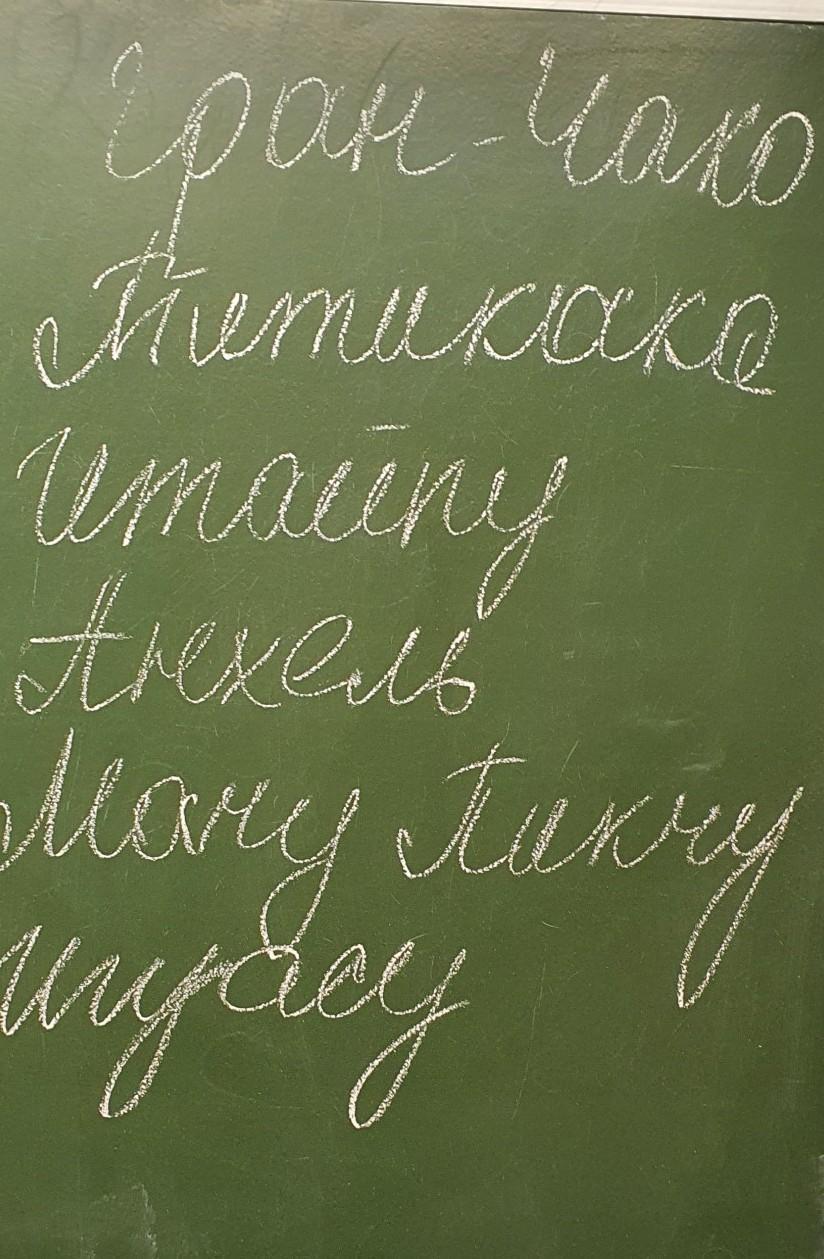 Гран-Чако
Титикака
Итайпу
Анхель
Мачу Пикчу
Игуасу